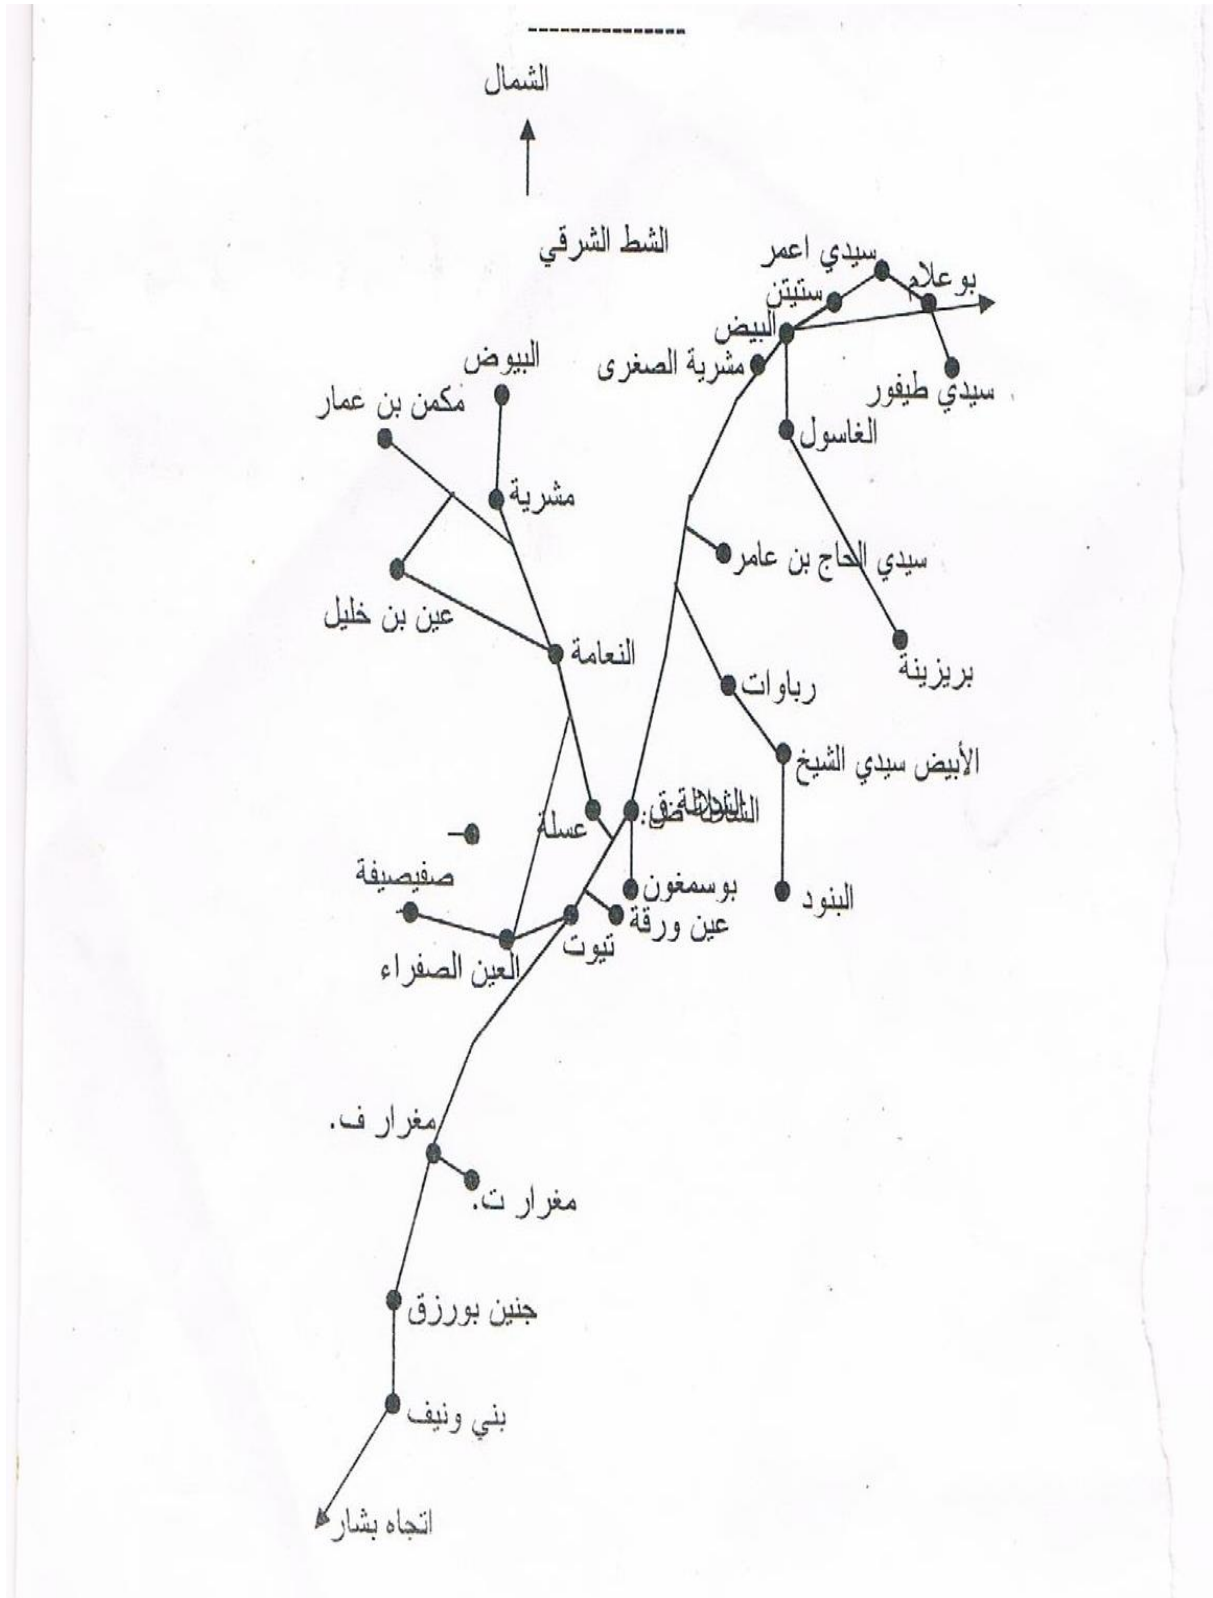 الشمال
الشط الشرقي
سيدي اعمر
بوعلام
ستيتن
البيض
البيوض
مشرية الصغرى
سيدي طيفور
مكمن بن عمار
الغاسول
مشرية
سيدي الحاج بن عامر
عين بن خليل
النعامة
بريزينة
رباوات
الأبيض سيدي الشيخ
عسلة
صفيصيفة
بوسمغون
البنود
عين ورقة
تيوت
العين الصفراء
مغرار ف.
مغرار ت.
جنين بورزق
بني ونيف
اتجاه بشار